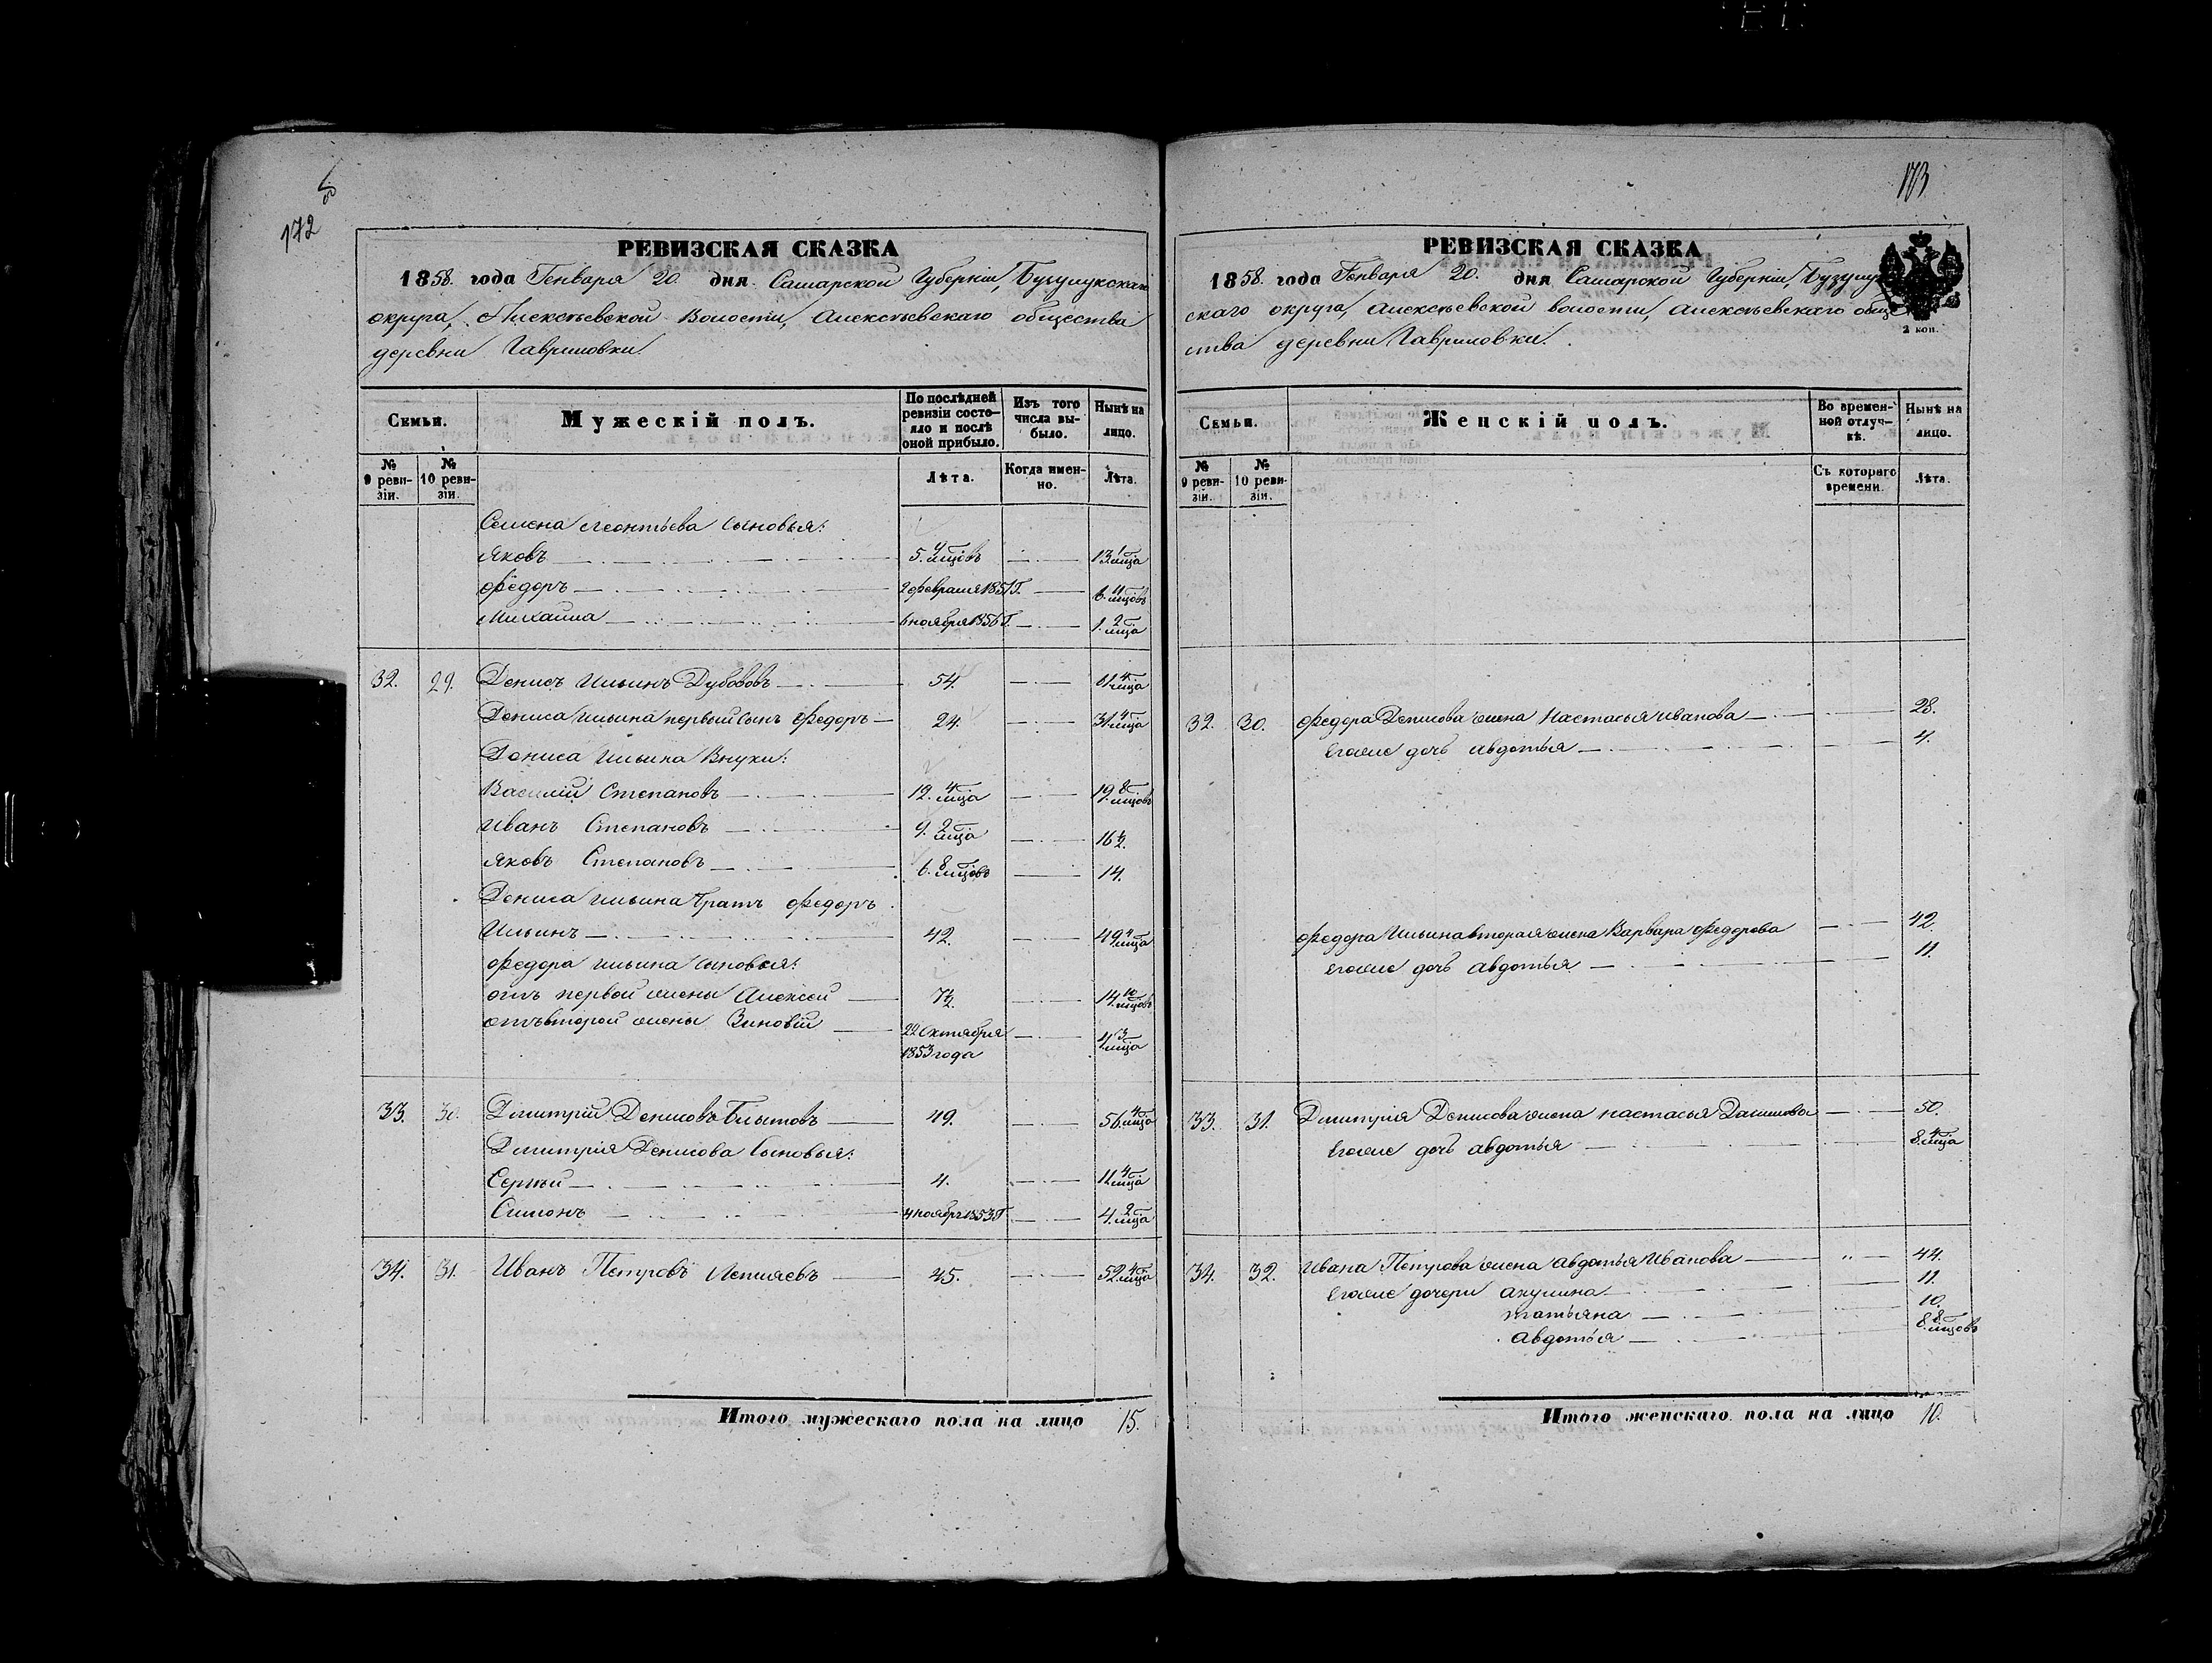 172
РЕВИЗСКАЯ СКАЗКА
1858. года Генваря 20. дня Самарской Губерніи, Бузулукскаго
округа, Алексѣевской Волости, Алексѣевскаго общества
деревни Гавриловки.
Семьи.
Мужескій полъ.
По послѣдней ревизіи состояло и послѣ оной прибыло.
Изъ того числа выбыло.
Нынѣ на лицо.
№ 9 ревизіи.
№ 10 ревизіи.
Лѣта.
Когда именно.
Лѣта.
Семена Леонтьева сыновья:
Яковъ 5. 4 мцовъ 13. 1 мца
Федоръ 2 февраля 1851 г. 6. 11 мцовъ
Михаила 6 ноября 1856 г. 1. 2 мца
32. 29. Денисъ Ильинъ Дубововъ 54. 61. 4 мца
Дениса Ильина первый сынъ Федоръ 24. 31. 4 мца
Дениса Ильина Внуки:
Василій Степановъ 12. 4 мца 19. 8 мцовъ
Иванъ Степановъ 9. 2 мца 16 ½.
Яковъ Степановъ 6. 8 мцовъ 14.
Дениса Ильина братъ Федоръ
Ильинъ 42. 49. 4 мца
Федора Ильина сыновья:
отъ первой жены Алексей 7 ½. 14. 10 мцовъ
отъ второй жены Зиновій 22 Октября
1853 года 4. 3 мца
33. 30. Дмитрій Денисовъ 49. 56. 4 мца
Дмитрія Денисова Сыновья:
Сергѣй 4. 11. 4 мца
Симонъ 4 ноябр 1853 г. 4. 2 мца
34. 31. Иванъ Петровъ 45. 52. 4 мца
Итого мужескаго пола на лицо 15.
173
РЕВИЗСКАЯ СКАЗКА
1858. года Генваря 20. дня Самарской Губерніи, Бузулук
скаго округа, Алексѣевской волости, Алексѣевскаго обще
ства деревни Гавриловки.
2 коп.
Семьи.
Женскій полъ.
Во временной отлучкѣ.
Нынѣ на лицо.
№ 9 ревизіи.
№ 10 ревизіи.
Съ котораго времени.
Лѣта.
32. 30. Федора Денисова жена Настасья Иванова 28.
Егоже дочь Авдотья 4.
Федора Ильина вторая жена Варвара Федорова 42.
Егоже дочь Авдотья 11.
33. 31. Дмитрія Денисова жена Настасья Данилова 50.
Егоже дочь Авдотья 8. 4 мца
34. 32. Ивана Петрова жена Авдотья Иванова 44.
Егоже дочери Акулина 11.
Татьяна 10.
Авдотья 8. 8 мцовъ
Итого женскаго пола на лицо 10.